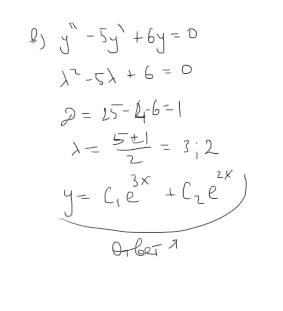 в) y'' - 5y' + 6y = 0
λ² - 5λ + 6 = 0
D = 25 - 4·6 = 1
λ = (5 ± 1)/2 = 3; 2
y = C₁e^{3x} + C₂e^{2x}
Ответ